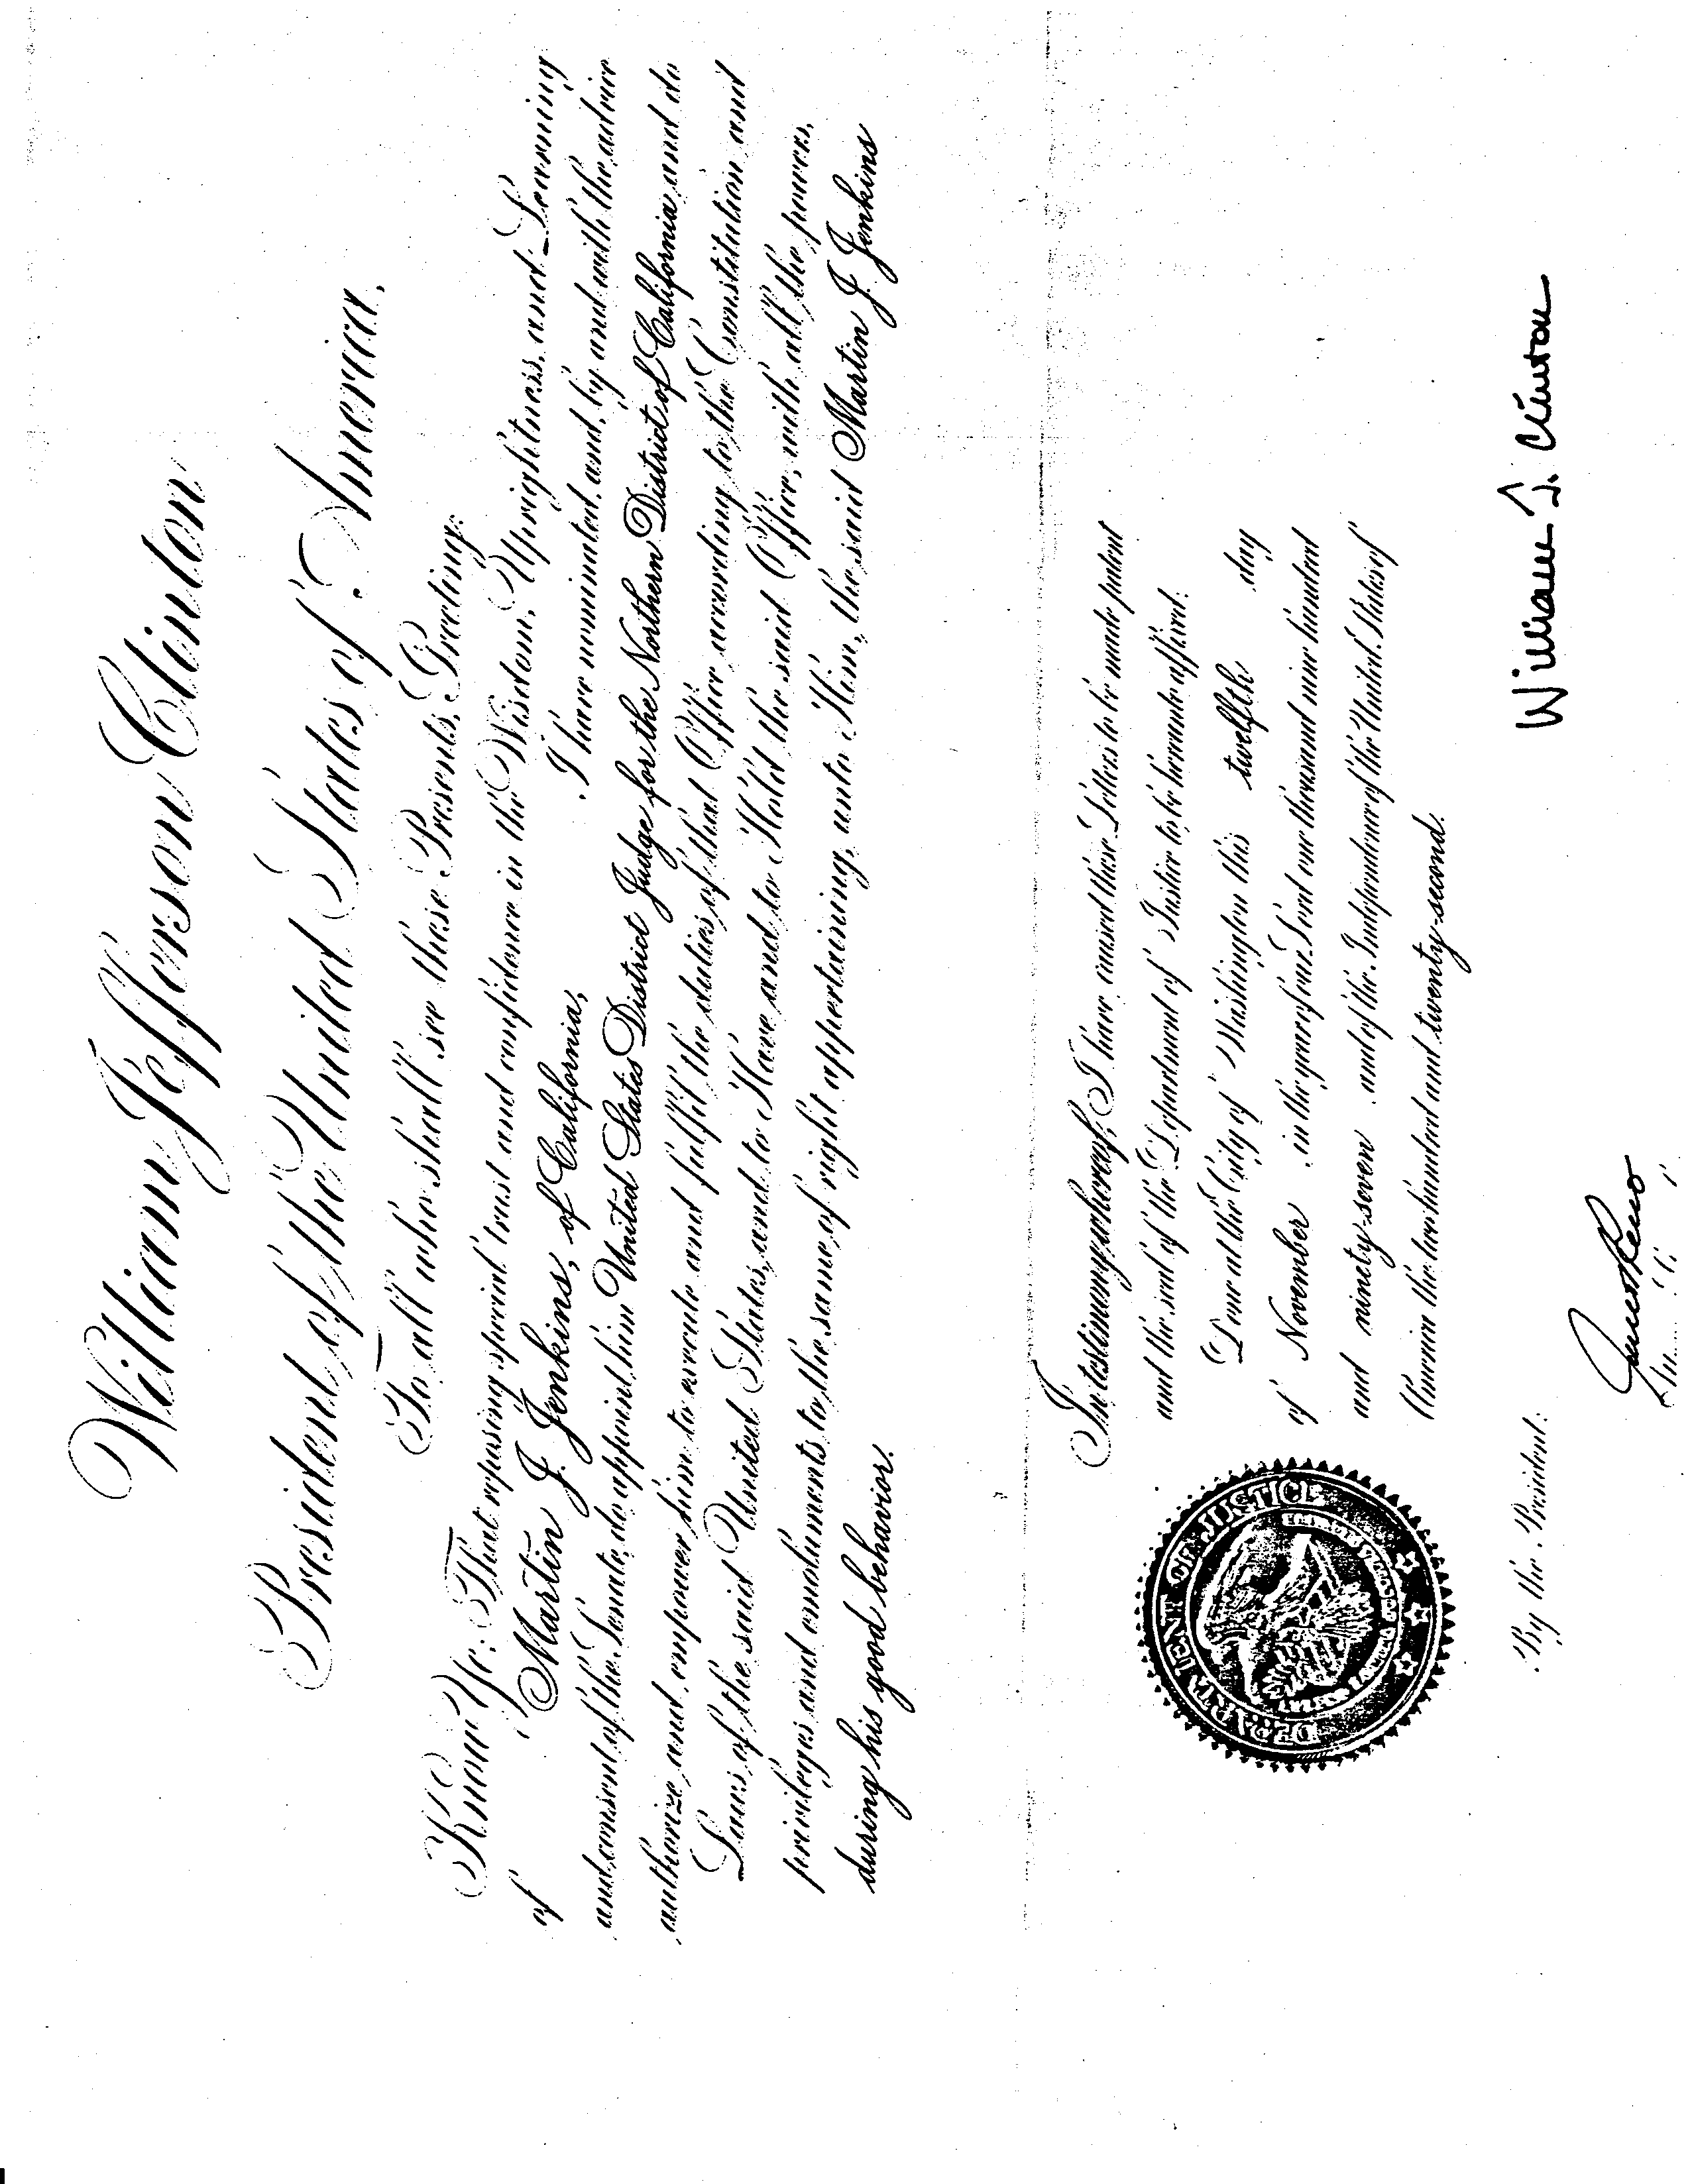 William Jefferson Clinton
President of the United States of America.
To all who shall see these Presents, Greeting:
Know Ye: That reposing special trust and confidence in the Wisdom, Uprightness, and Learning
of Martin J. Jenkins, of California, I have nominated, and, by and with the advice
and consent of the Senate, do appoint him United States District Judge for the Northern District of California and do
authorize and empower him to execute and fulfil the duties of that Office according to the Constitution and
Laws of the said United States, and to Have and to Hold the said Office, with all the powers,
privileges and emoluments to the same of right appertaining, unto Him, the said Martin J. Jenkins
during his good behavior.
In testimony whereof, I have caused these Letters to be made patent
and the seal of the Department of Justice to be hereunto affixed.
Done at the City of Washington this twelfth day
of November in the year of our Lord one thousand nine hundred
and ninety-seven and of the Independence of the United States of
America the two hundred and twenty-second.
DEPARTMENT OF JUSTICE
William J. Clinton
By the President:
Janet Reno